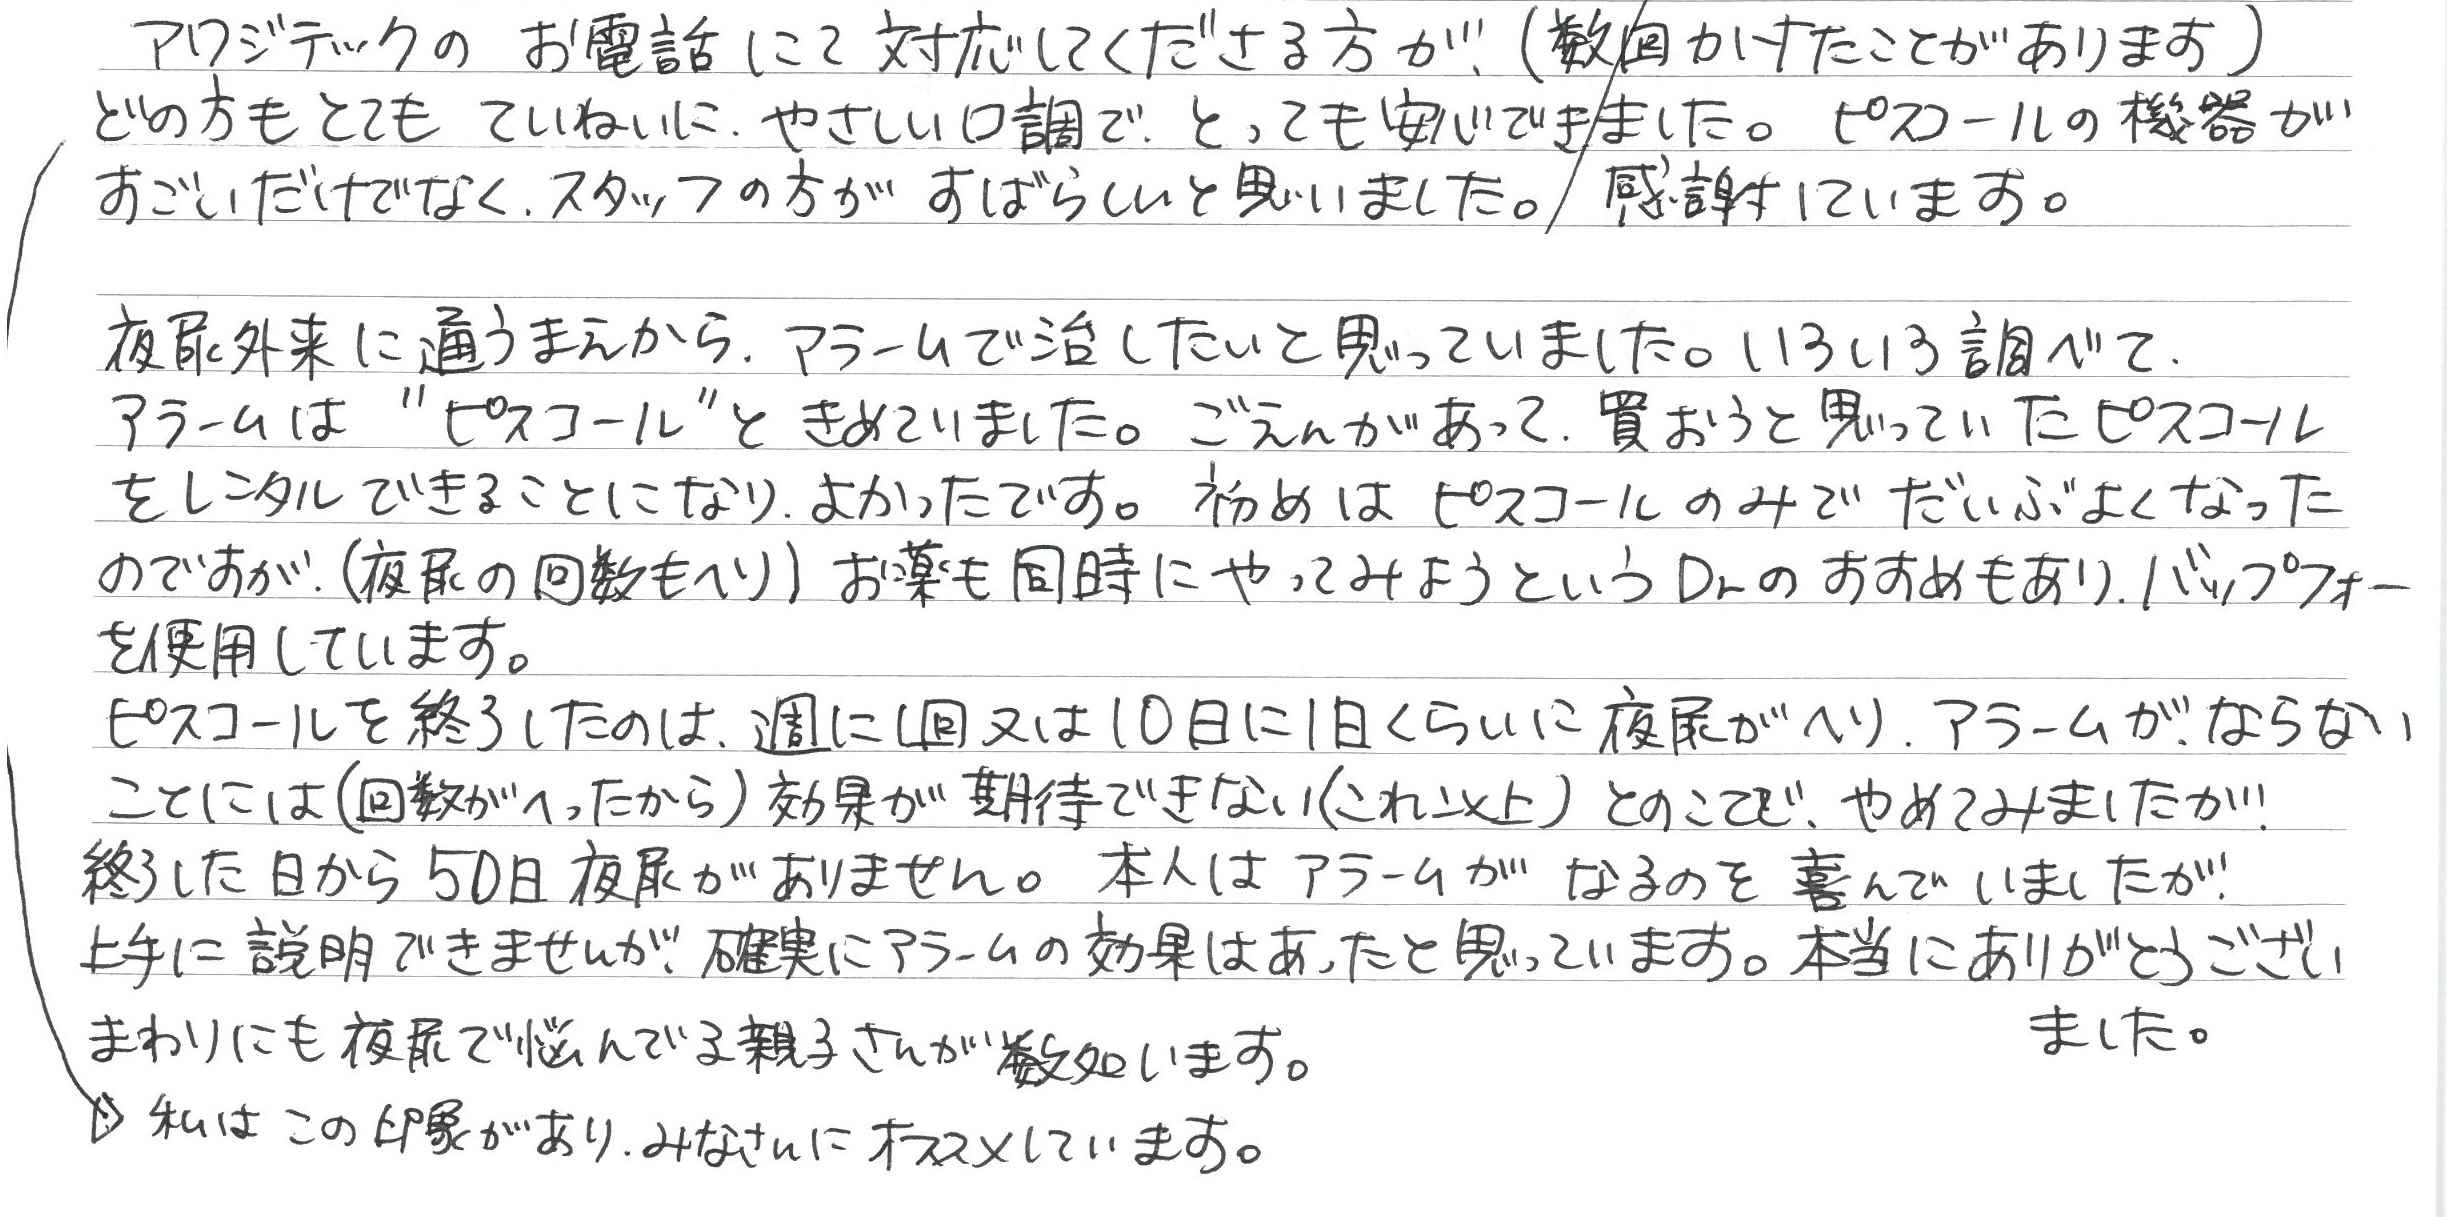 アワジテックの お電話にて 対応してくださる方が、(数回かけたことがあります)
どの方もとても ていねいに、やさしい口調で、とっても安心できました。 ピスコールの機器が
すごいだけでなく、スタッフの方が すばらしいと思いました。/ 感謝しています。
夜尿外来に通うまえから、アラームで治したいと思っていました。いろいろ調べて、
アラームは "ピスコール"と きめていました。ごえんがあって、買おうと思っていたピスコール
をレンタルできることになり、よかったです。 初めは ピスコールのみで だいぶよくなった
のですが、(夜尿の回数もへり) お薬も同時にやってみようというDrのおすすめもあり、バップフォー
を使用しています。
ピスコールを終了したのは、週に1回又は10日に1日くらいに夜尿がへり、アラームが、ならない
ことには(回数がへったから)効果が期待できない(これ以上)とのことで、やめてみましたが、
終了した日から50日夜尿がありません。 本人は アラームが なるのを喜んでいましたが、
上手に説明できませんが、確実にアラームの効果はあったと思っています。本当にありがとうござい
ました。
まわりにも夜尿で悩んでる親子さんが数名います。
私はこの印象があり、みなさんにオススメしています。